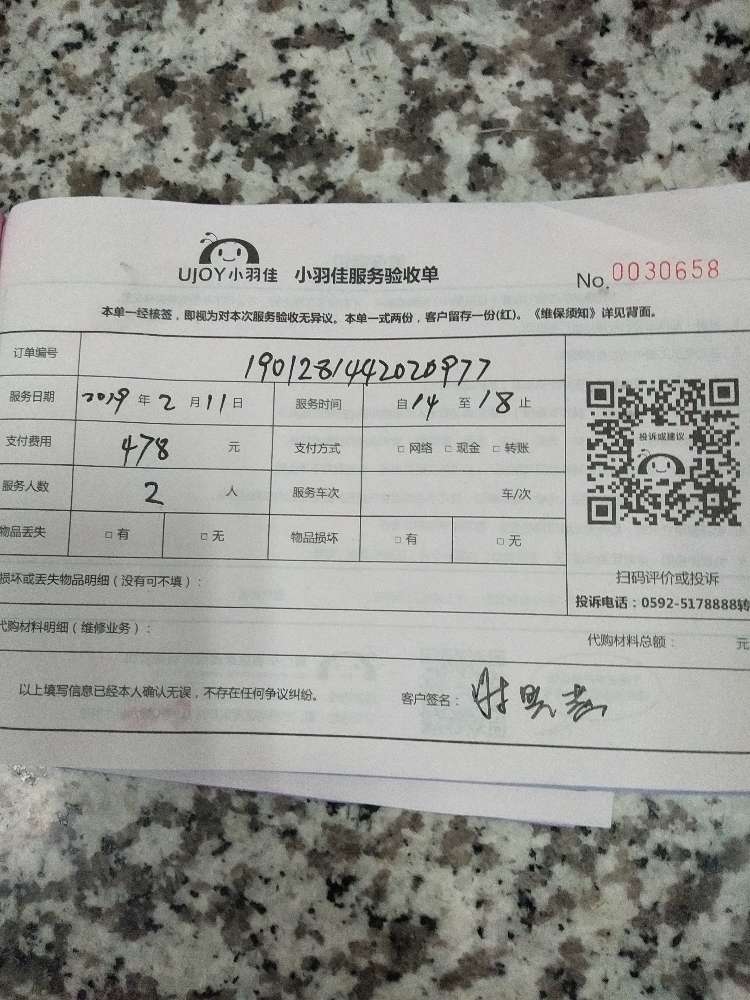 UJOY小羽佳 小羽佳服务验收单 No.0030658
本单一经核签，即视为对本次服务验收无异议。本单一式两份，客户留存一份(红)。《维保须知》详见背面。
订单编号 1901281442020977
服务日期 2019年2月11日 服务时间 自14至18止
支付费用 478元 支付方式 □网络 □现金 □转账
投诉或建议
服务人数 2人 服务车次 车/次
物品丢失 □有 □无 物品损坏 □有 □无
扫码评价或投诉
损坏或丢失物品明细（没有可不填）：
投诉电话：0592-5178888转
代购材料明细（维修业务）：
代购材料总额： 元
以上填写信息已经本人确认无误，不存在任何争议纠纷。 客户签名：